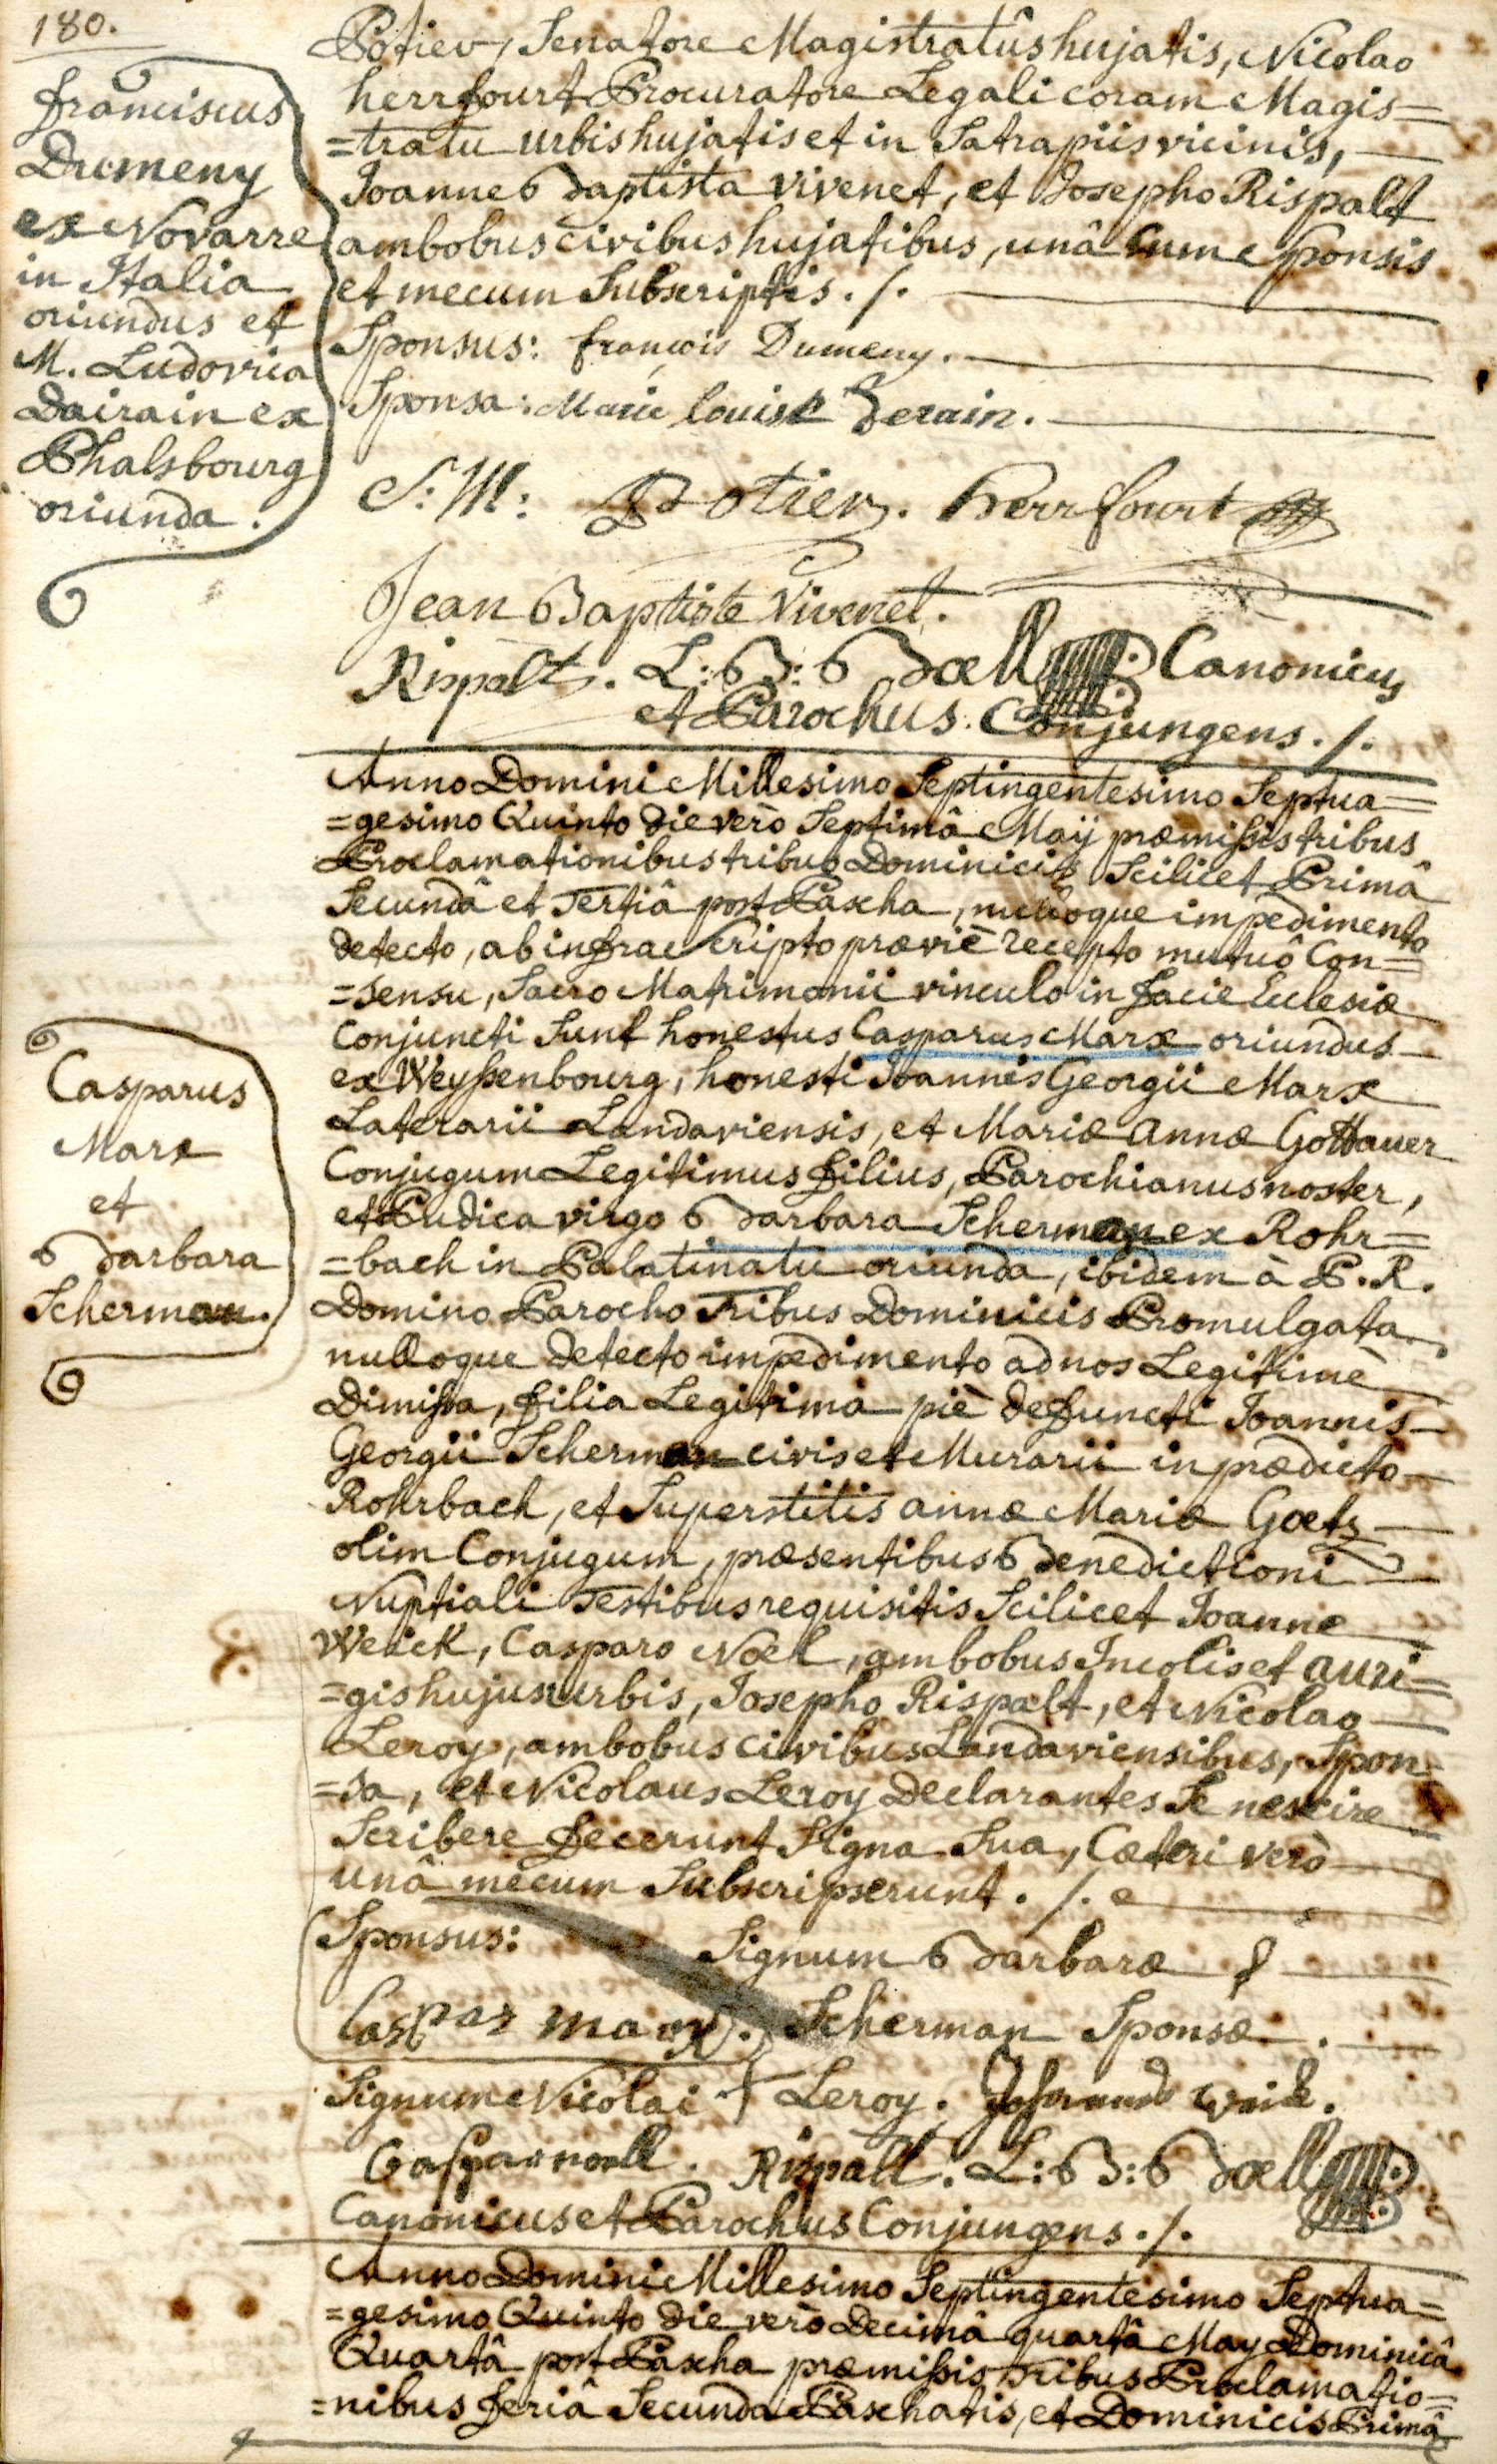 180.
franciscus
Dumeny
ex Novarre
in Italia
oriundus et
M. Ludovica
Dairain ex
Phalsbourg
oriunda.
Potier, Senatore Magistratûs hujatis, Nicolao
herrfourt Procuratore Legali coram Magis=
=tratu urbis hujatis et in Satrapiis vicinis,
Joanne Baptista vivenet, et Josepho Rispalt
ambobus civibus hujatibus, unâ cum Sponsis
et mecum Subscriptis ./.
Sponsus: françois Dumeny.
Sponsa: Marie louise Derain.
S: M: Potier. herrfourt
Jean Baptiste Vivenet.
Rispalt. L: B: Boell Canonicus
et Parochus Conjungens ./.
Casparus
Marx
et
Barbara
Scherman.
Anno Domini Millesimo Septingentesimo Septua=
=gesimo Quinto die verò Septimâ Maij præmissis tribus
Proclamationibus tribus Dominicis Scilicet Primâ
Secundâ et Tertiâ post Pascha, nulloque impedimento
detecto, ab infra Scripto præviè recepto mutuô Con=
=sensu, Sacro Matrimonii vinculo in facie Ecclesiæ
Conjuncti Sunt honestus Casparus Marx oriundus
ex Weyssenbourg, honesti Joannis Georgii Marx
Laterarii Landaviensis, et Mariæ Annæ Gottauer
Conjugum Legitimus filius, Parochianus noster,
et Pudica virgo Barbara Scherman ex Rohr=
=bach in Palatinatu oriunda, ibidem à P. R.
Domino Parocho Tribus Dominicis Promulgata
nulloque detecto impedimento ad nos Legitimè
Dimissa, filia Legitima piè defuncti Joannis
Georgii Scherman civis et Murarii in prædicto
Rohrbach, et Superstitis annæ Mariæ Goetz
olim Conjugum, præsentibus Benedictioni
Nuptiali Testibus requisitis Scilicet Joanne
Weick, Casparo Noel, ambobus Incolis et auri=
=gis hujus urbis, Josepho Rispalt, et Nicolao
Leroy, ambobus civibus Landaviensibus, Spon=
=sa, et Nicolaus Leroy Declarantes Se nescire
Scribere fecerunt Signa Sua, Cæteri verò
unâ mecum Subscripserunt ./.
Sponsus: Signum Barbaræ
Caspar marx. Scherman Sponsæ.
Signum Nicolai + Leroy. Johannes Weick.
Caspar noell. Rispalt. L: B: Boell
Canonicus et Parochus Conjungens ./.
Anno Domini Millesimo Septingentesimo Septua=
=gesimo Quinto die verò Decimâ quartâ May Dominicâ
Quartâ post Pascha præmissis Tribus Proclamatio=
=nibus feriâ Secundâ Paschatis, et Dominicis Primâ